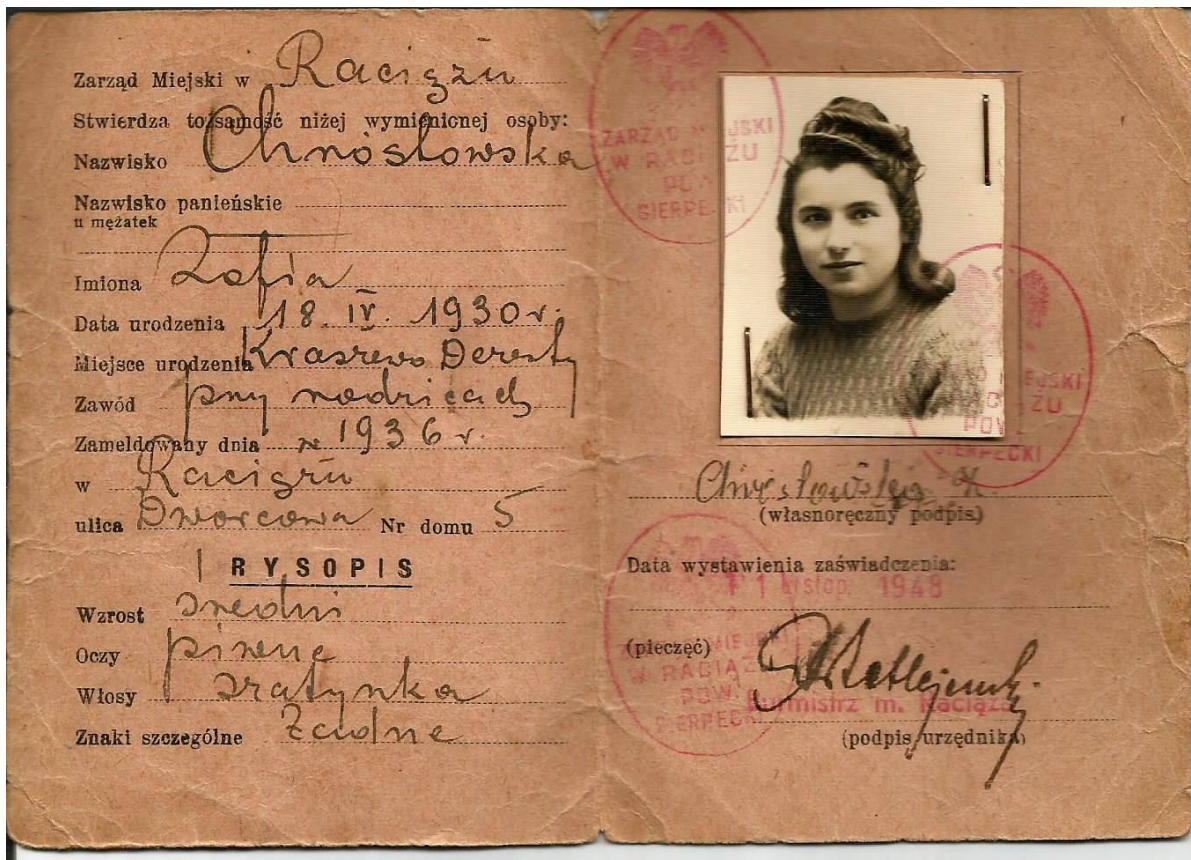 Zarząd Miejski w Raciążu
Stwierdza tożsamość niżej wymienionej osoby:
Nazwisko Chrósłowska
Nazwisko panieńskie
u mężatek
Imiona Zofia
Data urodzenia 18. IV. 1930 r.
Miejsce urodzenia Kraszewo
Zawód przy rodzicach
Zameldowany dnia w 1936 r.
w Raciążu
ulica Dworcowa Nr domu 5
RYSOPIS
Wzrost średni
Oczy piwne
Włosy szatynka
Znaki szczególne Żadne
ZARZĄD MIEJSKI
W RACIĄŻU
POW.
SIERPECKI
(własnoręczny podpis)
Data wystawienia zaświadczenia:
1948
(pieczęć)
W RACIĄŻU
POW.
SIERPECKI
Burmistrz m. Raciąża
(podpis urzędnika)